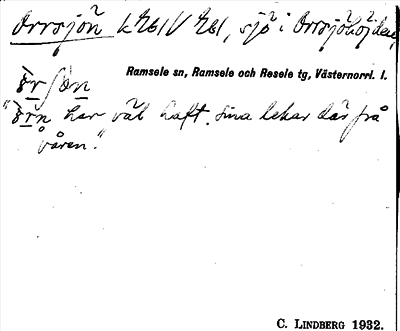 Orrsjön sjö i Orrsjöhöjden,
Ramsele sn, Ramsele och Resele tg, Västernorrl. l.
har väl haft sina lekar där på
våren."
C. LINDBERG 1932.